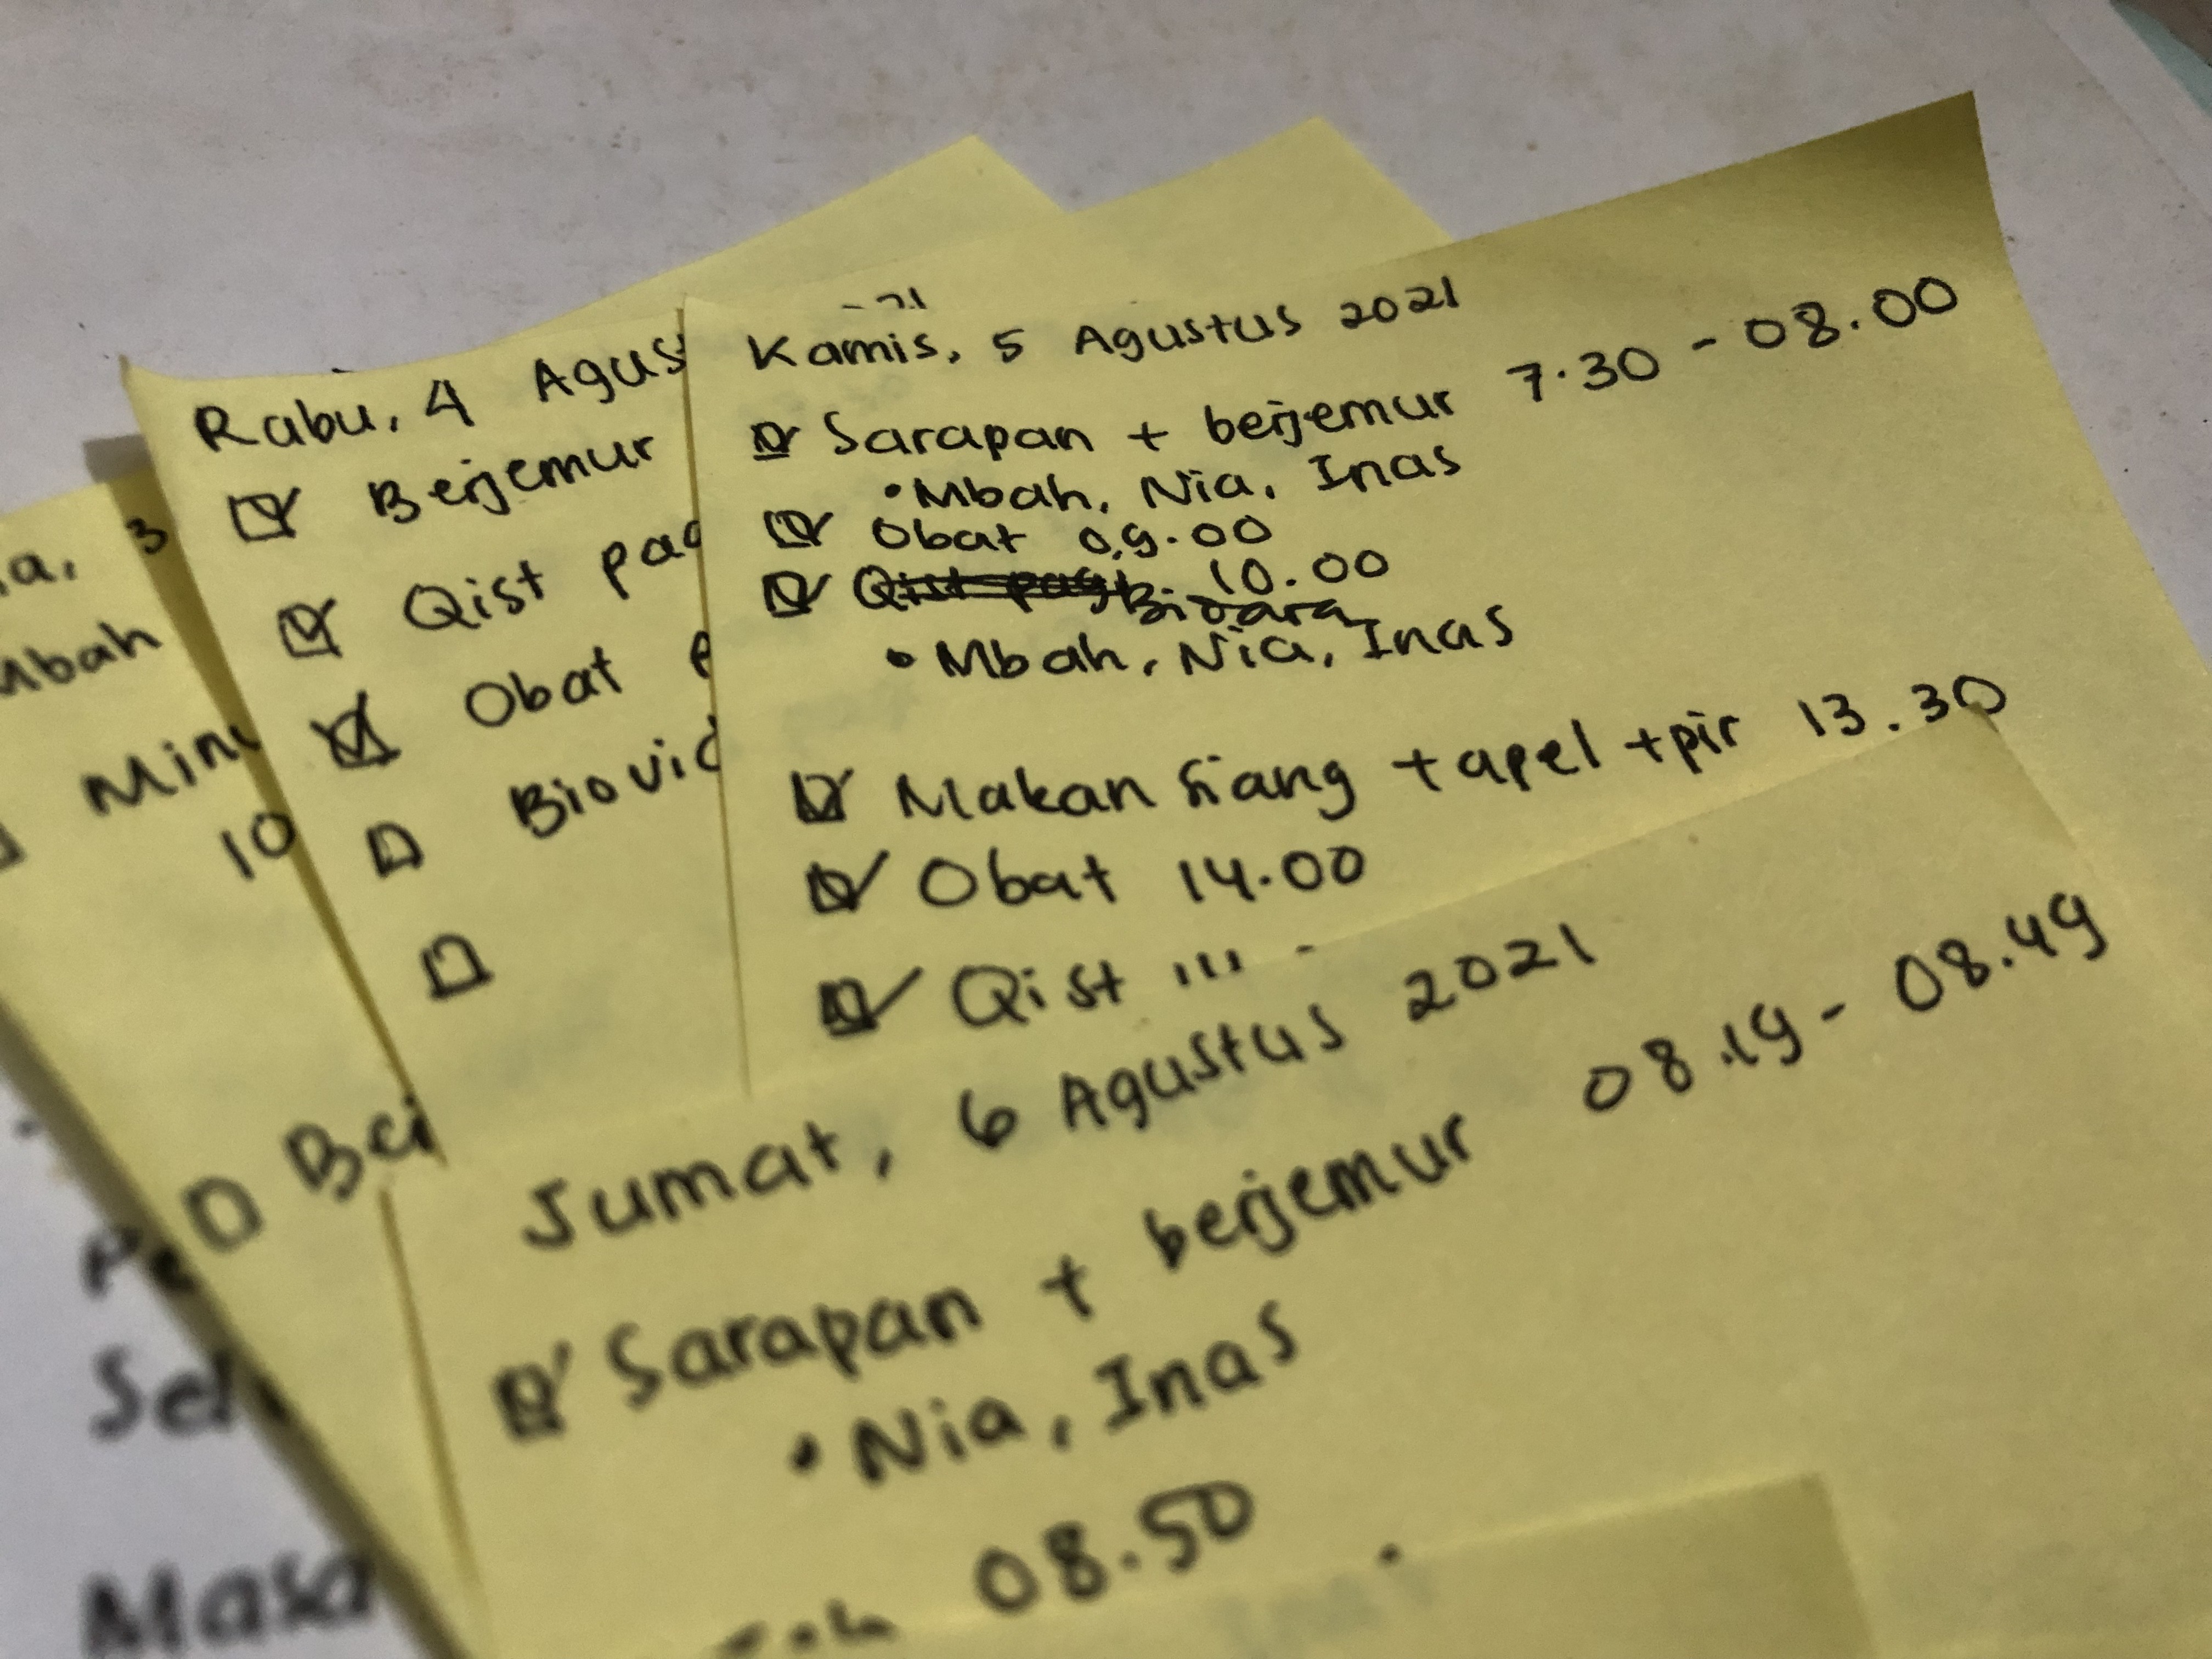 a, 3
Mbah
10
Rabu, 4 Agus
Berjemur
Qist pag
Obat
Biovid
Kamis, 5 Agustus 2021
Sarapan + berjemur 7.30 - 08.00
• Mbah, Nia, Inas
Obat 09.00
Qist pagi 10.00
Bidara
• Mbah, Nia, Inas
Makan siang + apel + pir 13.30
Obat 14.00
Qist
Jumat, 6 Agustus 2021
Sarapan + berjemur 08.19 - 08.49
• Nia, Inas
08.50